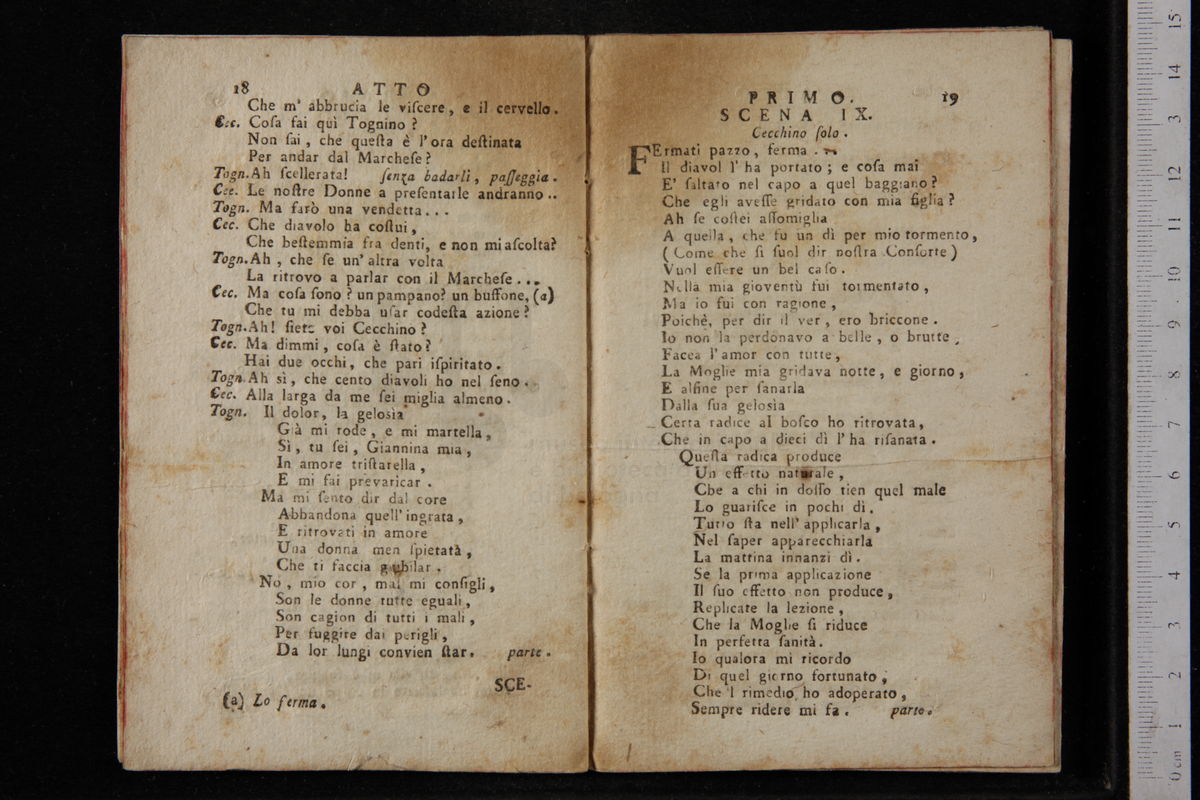 18 ATTO
Che m' abbrucia le viſcere, e il cervello.
Cec. Coſa fai quì Tognino?
Non ſai, che queſta è l'ora deſtinata
Per andar dal Marcheſe?
Togn. Ah ſcellerata! ſenza badarli, paſſeggia.
Cec. Le noſtre Donne a preſentarle andranno..
Togn. Ma farò una vendetta...
Cec. Che diavolo ha coſtui,
Che beſtemmia fra denti, e non mi aſcolta?
Togn. Ah, che ſe un' altra volta
La ritrovo a parlar con il Marcheſe...
Cec. Ma coſa ſono? un pampano? un buffone, (a)
Che tu mi debba uſar codeſta azione?
Togn. Ah! ſiete voi Cecchino?
Cec. Ma dimmi, coſa è ſtato?
Hai due occhi, che pari iſpiritato.
Togn. Ah sì, che cento diavoli ho nel ſeno.
Cec. Alla larga da me ſei miglia almeno.
Togn. Il dolor, la gelosìa
Già mi rode, e mi martella,
Sì, tu ſei, Giannina mia,
In amore triſtarella,
E mi fai prevaricar.
Ma mi ſento dir dal core
Abbandona quell' ingrata,
E ritrovati in amore
Una donna men ſpietatà,
Che ti faccia giubilar.
No, mio cor, mal mi conſigli,
Son le donne tutte eguali,
Son cagion di tutti i mali,
Per fuggire dai perigli,
Da lor lungi convien ſtar. parte.
SCE-
(a) Lo ferma.
PRIMO. 19
SCENA IX.
Cecchino ſolo.
FErmati pazzo, ferma.
Il diavol l' ha portato; e coſa mai
E' ſaltato nel capo a quel baggiano?
Che egli aveſſe gridato con mia figlia?
Ah ſe coſtei aſſomiglia
A quella, che fu un dì per mio tormento,
(Come che ſi ſuol dir noſtra Conſorte)
Vuol eſſere un bel caſo.
Nella mia gioventù fui tormentato,
Ma io fui con ragione,
Poichè, per dir il ver, ero briccone.
Io non la perdonavo a belle, o brutte,
Facea l'amor con tutte,
La Moglie mia gridava notte, e giorno,
E alfine per ſanarla
Dalla ſua gelosìa
Certa radice al boſco ho ritrovata,
Che in capo a dieci dì l' ha riſanata.
Queſta radica produce
Un effetto naturale,
Che a chi in doſſo tien quel male
Lo guariſce in pochi dì.
Tutto ſta nell' applicarla,
Nel ſaper apparecchiarla
La mattina innanzi dì.
Se la prima applicazione
Il ſuo effetto non produce,
Replicate la lezione,
Che la Moglie ſi riduce
In perfetta ſanità.
Io qualora mi ricordo
Di quel giorno fortunato,
Che 'l rimedio ho adoperato,
Sempre ridere mi fa. parte.